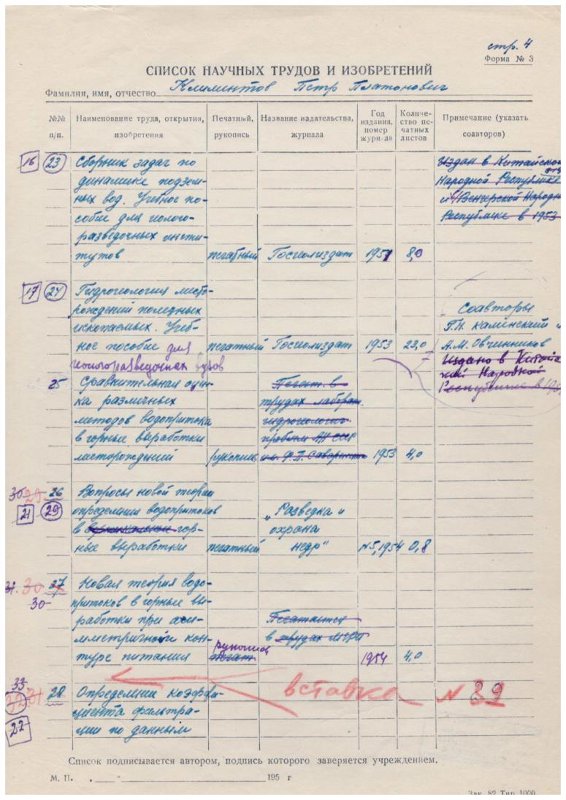 стр. 4
Форма № 3
СПИСОК НАУЧНЫХ ТРУДОВ И ИЗОБРЕТЕНИЙ
Фамилия, имя, отчество Климентов Петр Платонович
№№ п/п. Наименование труда, открытия, изобретения Печатный, рукопись Название издательства, журнала Год издания, номер журнала Количество печатных листов Примечание (указать соавторов)
16 23 Сборник задач по
динамике подзем-
ных вод. Учебное по-
собие для геолого-
разведочных инсти-
тутов печатный Госгеолиздат 1951 8,0
Издан в Китайской
Народной Республике
и Венгерской Народн
Республике в 1953
17 24 Гидрогеология место-
рождений полезных
ископаемых. Учеб-
ное пособие для печатный Госгеолиздат 1953 22,0
геологоразведочных вузов
Соавторы
Г.Н. Каменский и
А.М. Овчинников
Издано в Китай
ской Народной
Республике в
25 Сравнительная оцен-
ка различных
методов водопритока
в горные выработки
месторождений рукопись
Печат. в
трудах лабора
гидрогеологич
проблем АН СССР
им. Ф.П. Саваренск 1953 4,0
30 26
21 29 Вопросы новой теории
определения водопритоков
в гор-
ные выработки печатный
„Разведка и
охрана
недр" №5, 1954 0,8
30 27
30 Новая теория водо-
притоков в горные вы-
работки при аси-
мметричном кон-
туре питания рукопись печат.
Печатается
в трудах 1954 4,0
33 28
22 Определение коэфи-
циента фильтра-
ции по данным
вставка № 32
Список подписывается автором, подпись которого заверяется учреждением.
М. П. „ — " 195 г
Зак. 82 Тир. 1000